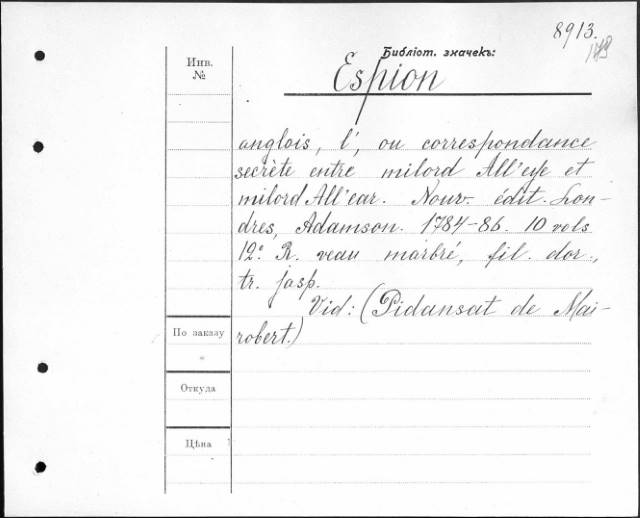 8913.
Библіот. значекъ:
Инв.
№
Espion
anglois, l', ou correspondance
secrète entre milord All'eye et
milord All'ear. Nouv. édit. Lon-
dres, Adamson. 1784-86. 10 vols
12º R. veau marbré, fil. dor.,
tr. jasp.
Vid: (Pidansat de Mai-
По заказу
robert.)
"
Откуда
Цѣна